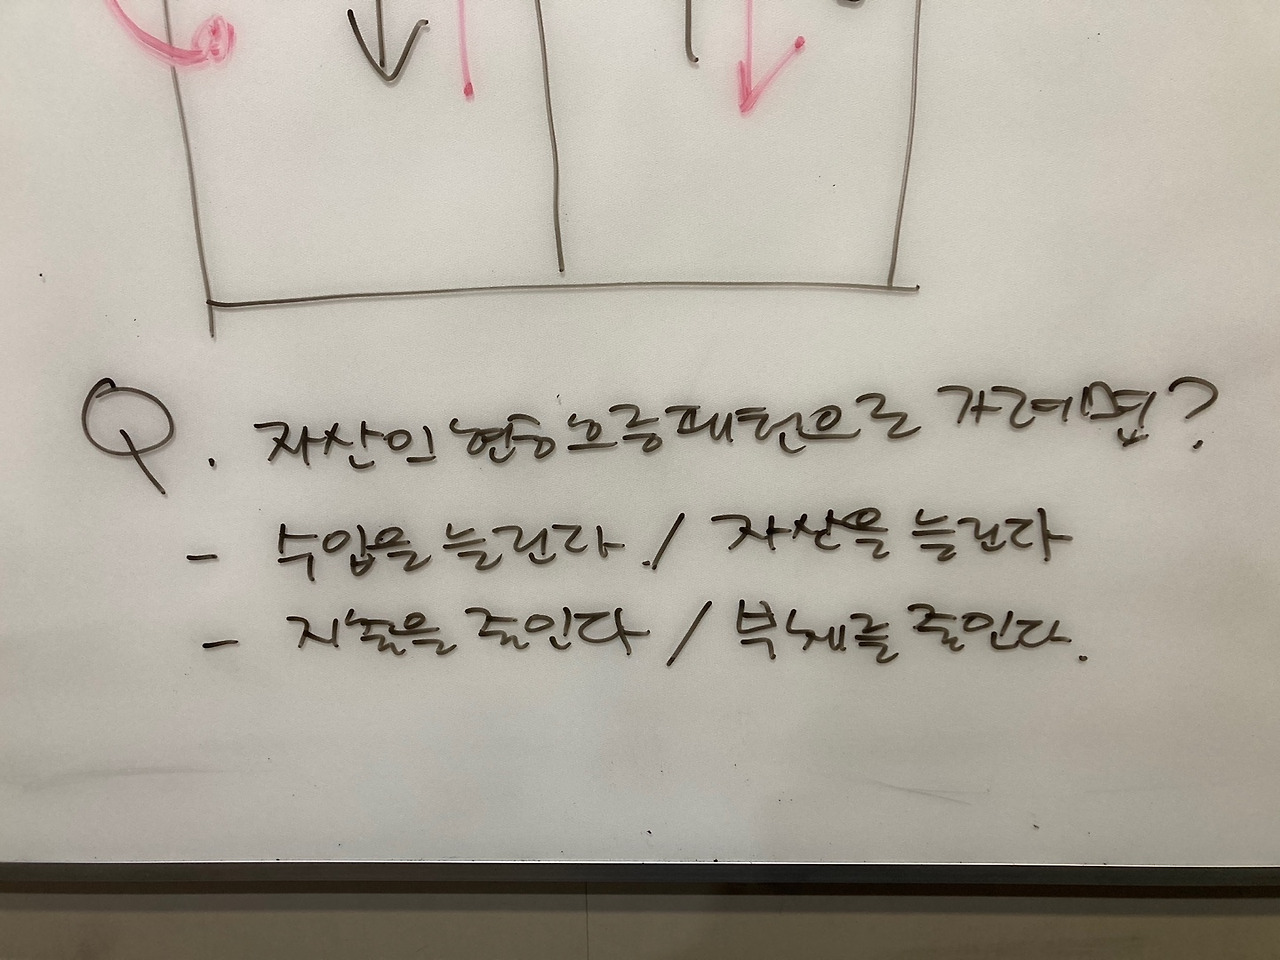 Q. 자산인 현금흐름패턴으로 가려면?
- 수입을 늘린다 / 자산을 늘린다
- 지출을 줄인다 / 부채를 줄인다.